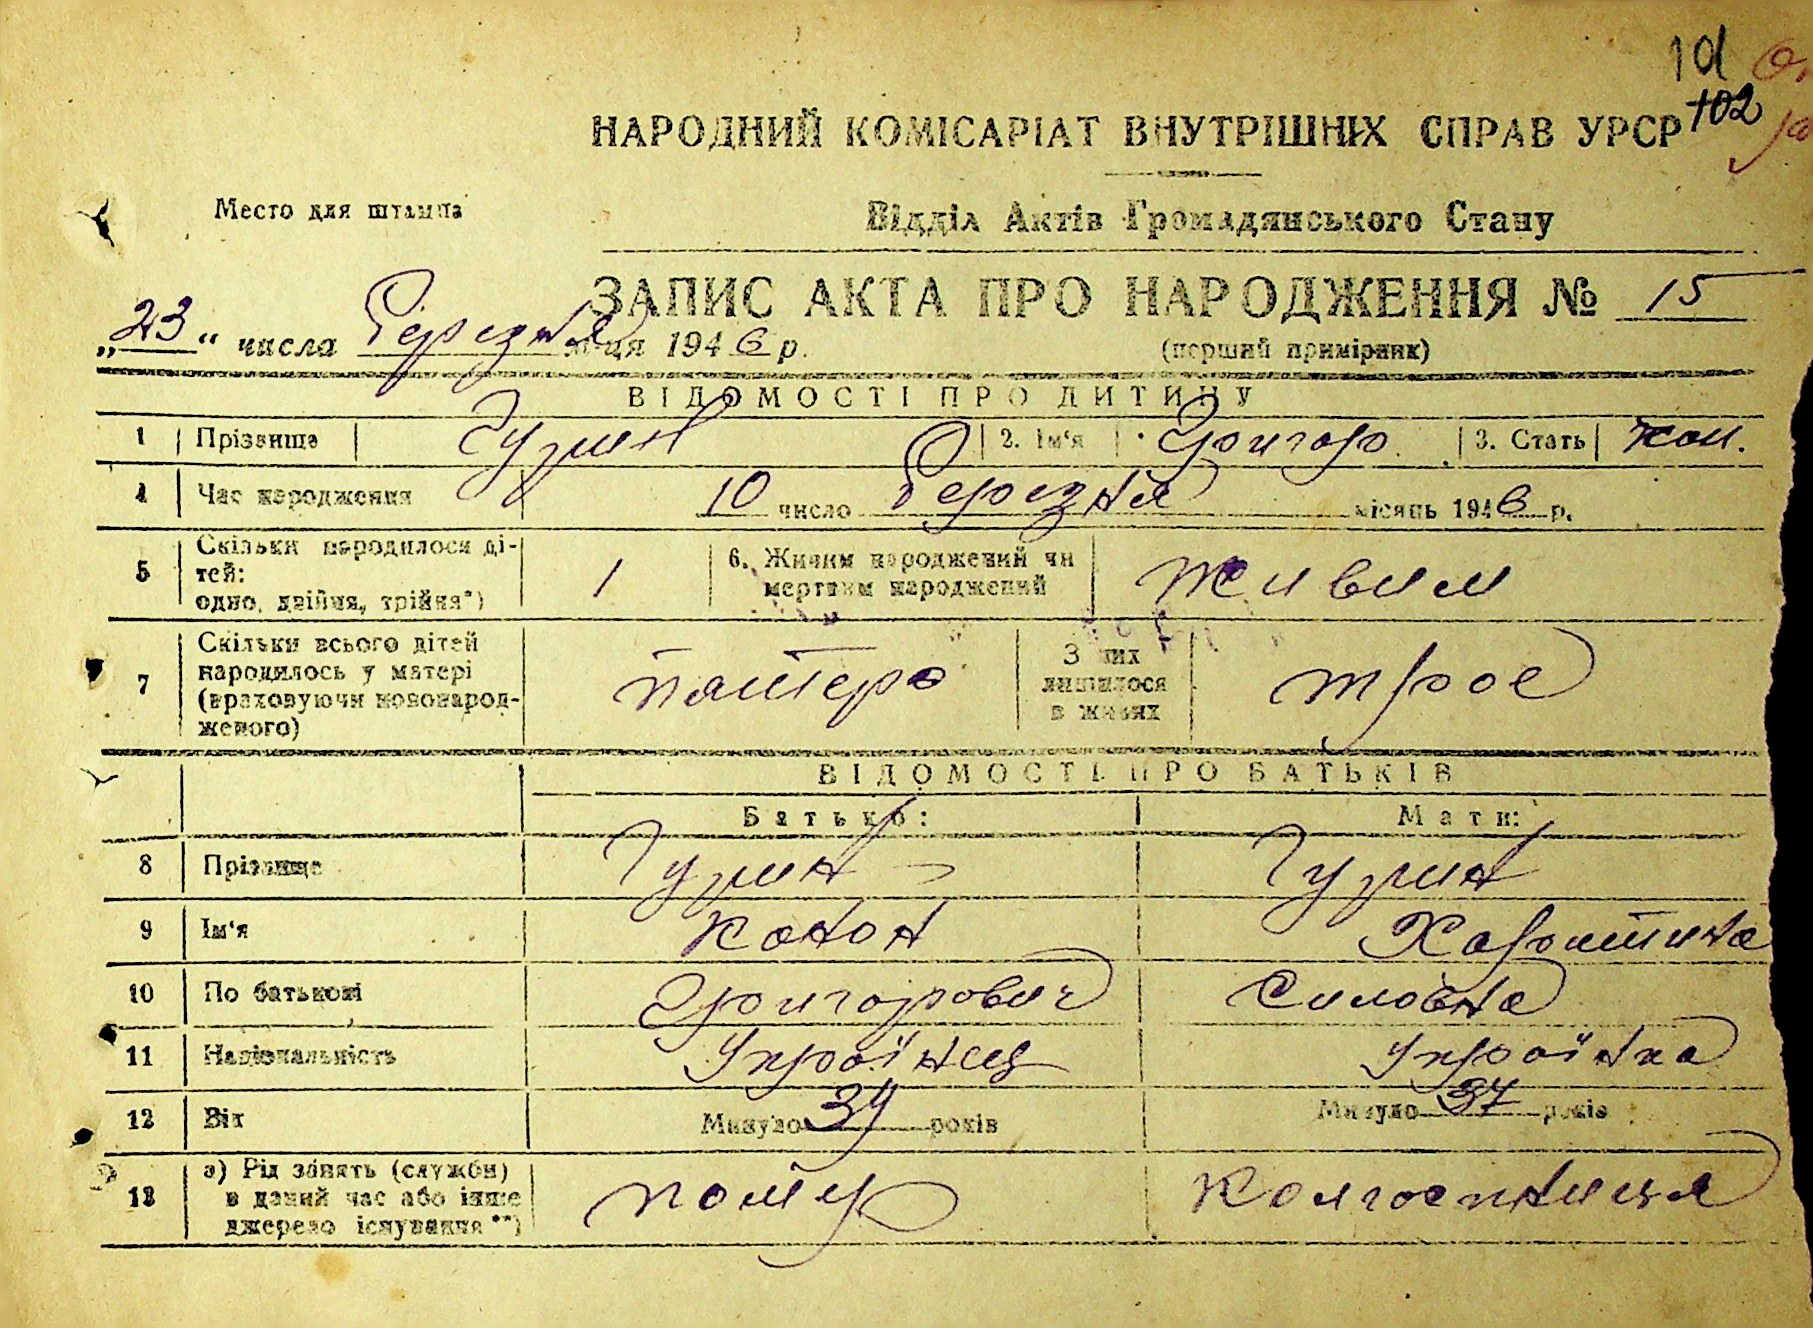 101
102
НАРОДНИЙ КОМІСАРІАТ ВНУТРІШНІХ СПРАВ УРСР
Место для штампа
Відділ Актів Громадянського Стану
ЗАПИС АКТА ПРО НАРОДЖЕННЯ № 15
„23“ числа Березня м-ця 1946 р.
(перший примірник)
ВІДОМОСТІ ПРО ДИТИНУ
1 Прізвище Гузин 2. Ім'я Григоро 3. Стать чол.
4 Час народження 10 число Березня місяць 1946 р.
5 Скільки народилося ді-
тей:
одно, двійня, трійня*) 1 6. Живим народжений чи
мертвим народжений Живим
7 Скільки всього дітей
народилось у матері
(враховуючи новонарод-
женого) пятеро З них
лишилося
в живих трое
ВІДОМОСТІ ПРО БАТЬКІВ
Батько: Мати:
8 Прізвище Гузин Гузин
9 Ім'я Конон Харитина
10 По батькові Григорович Силовна
11 Національність Українец Українка
12 Вік Минуло 34 років Минуло 37 років
13 а) Рід занять (служби)
в даний час або інше
джерело існування**) Колгоспниця